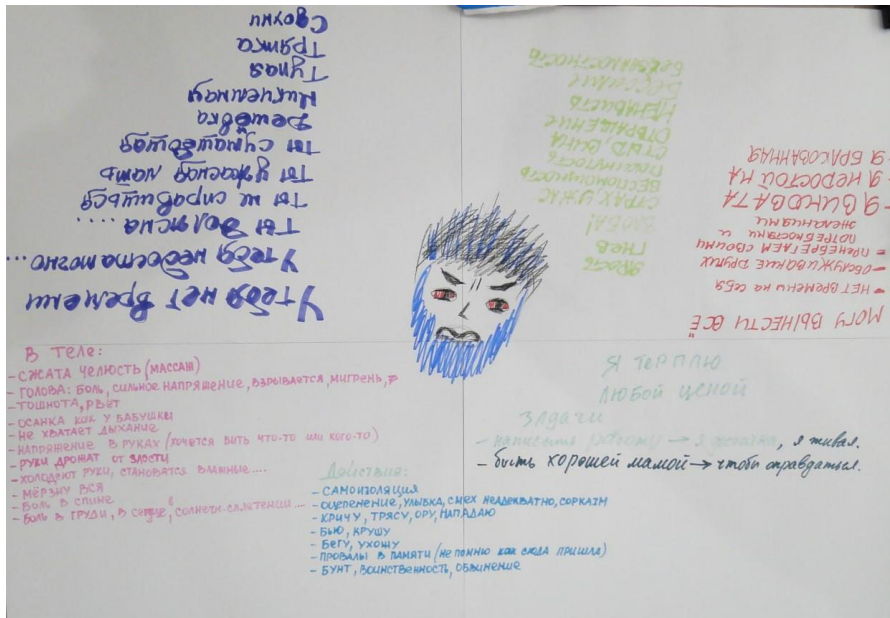 У тебя нет времени
У тебя недостаточно ...
Ты должна ....
Ты не справишься
Ты ужасная мать
Ты сумасшедшая
Дешёвка
Никчемная
Тупая
Тряпка
Сдохни
ЯРОСТЬ
ГНЕВ
ЗЛОБА!
СТРАХ, УЖАС
БЕСПОМОЩНОСТЬ
СТЫД, ВИНА
ОТВРАЩЕНИЕ
НЕНАВИСТЬ
БЕССИЛИЕ
МОГУ ВЫНЕСТИ ВСЁ
- НЕТ ВРЕМЕНИ на СЕБЯ
- ОБСЛУЖИВАНИЕ ДРУГИХ
- ПРЕНЕБРЕГАЕМ СВОИМИ
ПОТРЕБНОСТЯМИ И
ЖЕЛАНИЯМИ
- Я ВИНОВАТА
- Я НЕДОСТОЙНА
- Я БРАКОВАННАЯ
В Теле:
- СЖАТА ЧЕЛЮСТЬ (МАССАЖ)
- ГОЛОВА: БОЛЬ, СИЛЬНОЕ НАПРЯЖЕНИЕ, ВЗРЫВАЕТСЯ, МИГРЕНЬ,
- ТОШНОТА, РВЁТ
- ОСАНКА КАК У БАБУШКИ
- НЕ ХВАТАЕТ ДЫХАНИЕ
- НАПРЯЖЕНИЕ В РУКАХ (хочется бить что-то или кого-то)
- РУКИ ДРОЖАТ ОТ ЗЛОСТИ
- ХОЛОДЕЮТ РУКИ, СТАНОВЯТСЯ ВЛАЖНЫЕ....
- МЁРЗНУ ВСЯ
- БОЛЬ В СПИНЕ
- БОЛЬ В ГРУДИ, В сердце, в солнечн. сплетении...
Действия:
- САМОИЗОЛЯЦИЯ
- ОЦЕПЕНЕНИЕ, УЛЫБКА, СМЕХ НЕАДЕКВАТНО, СОРКАЗМ
- КРИЧУ, ТРЯСУ, ОРУ, НАПАДАЮ
- БЬЮ, КРУШУ
- БЕГУ, УХОЖУ
- ПРОВАЛЫ В ПАМЯТИ (не помню как сюда пришла)
- БУНТ, ВОИНСТВЕННОСТЬ, ОБВИНЕНИЕ
Я ТЕРПЛЮ
ЛЮБОЙ ЦЕНОЙ
ЗАДАЧИ
- написать работу → я, я живая.
- быть хорошей мамой → чтобы оправдаться.